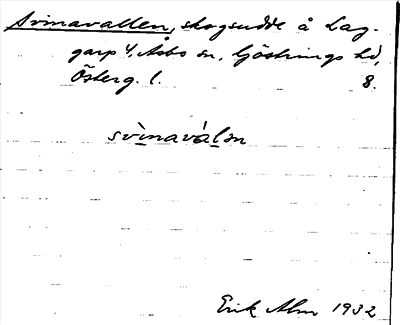 Svinavallen, skogsudde å Lag-
garp 4, Asbo sn, Göstrings hd,
Österg. l. 8.
svìnaválən
Erik Alm 1932